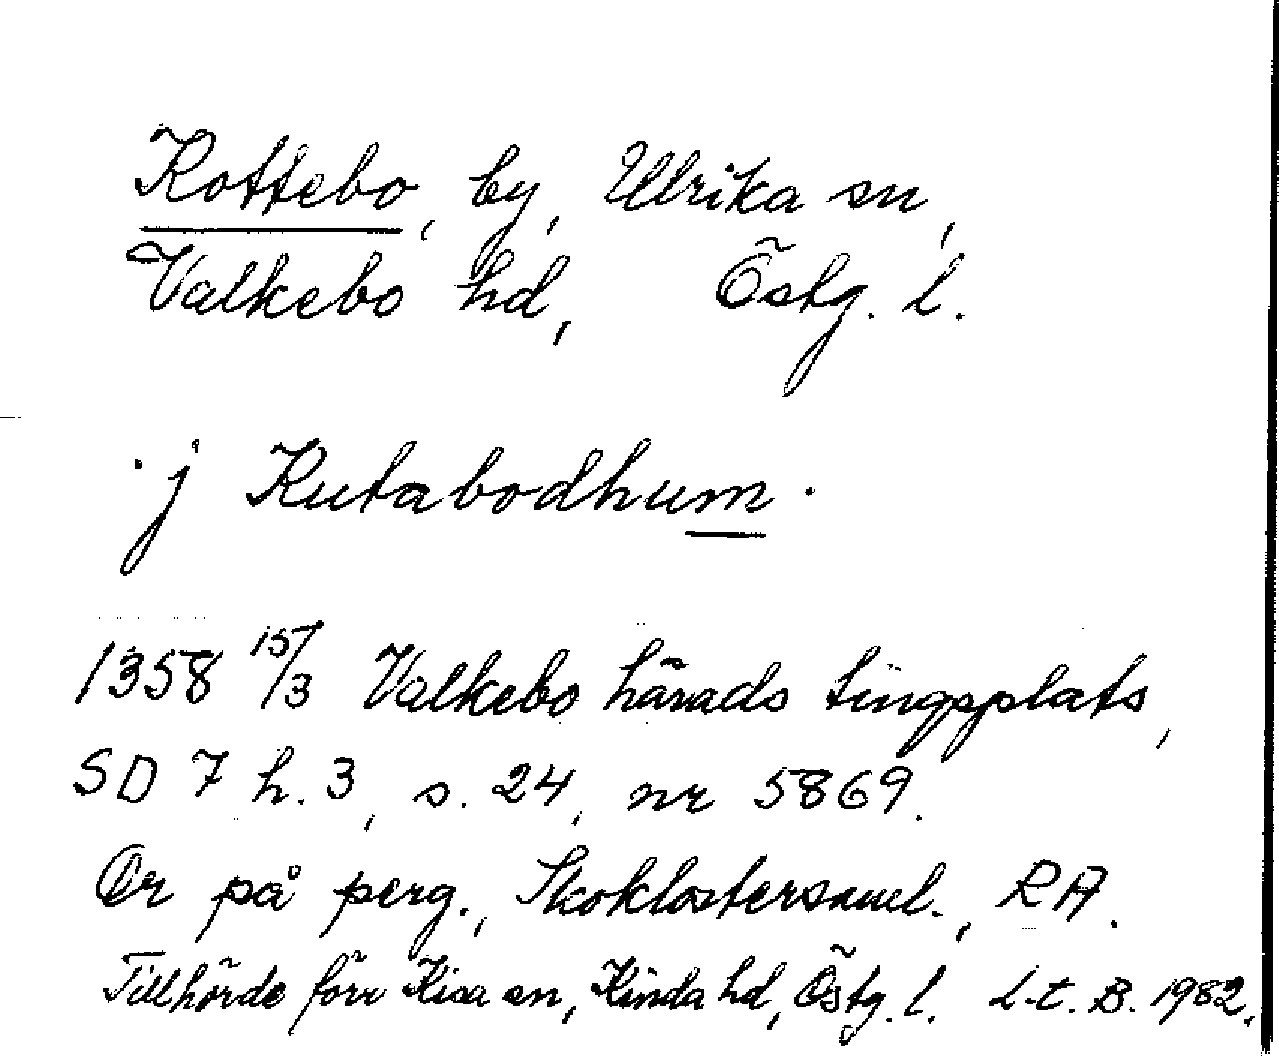 Kottebo, by, Ulrika sn,
Valkebo hd, Östg. l.
· j Kutabodhum ·
1358 15/3 Valkebo härads tingsplats,
SD 7 h. 3, s. 24, nr 5869.
Or på perg., Skoklostersaml., RA.
Tillhörde förr Kisa sn, Kinda hd, Östg. l. L.t. B. 1982.